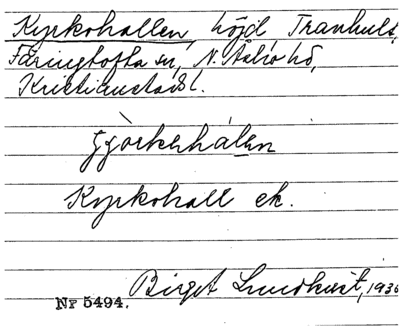 Kyrkohallen, höjd, Tranhult,
Färingtofta sn, N. Åsbo hd,
Kristianstads l.
Kyrkohall ek.
Birget Lundkvist, 1936
Nr 5494.